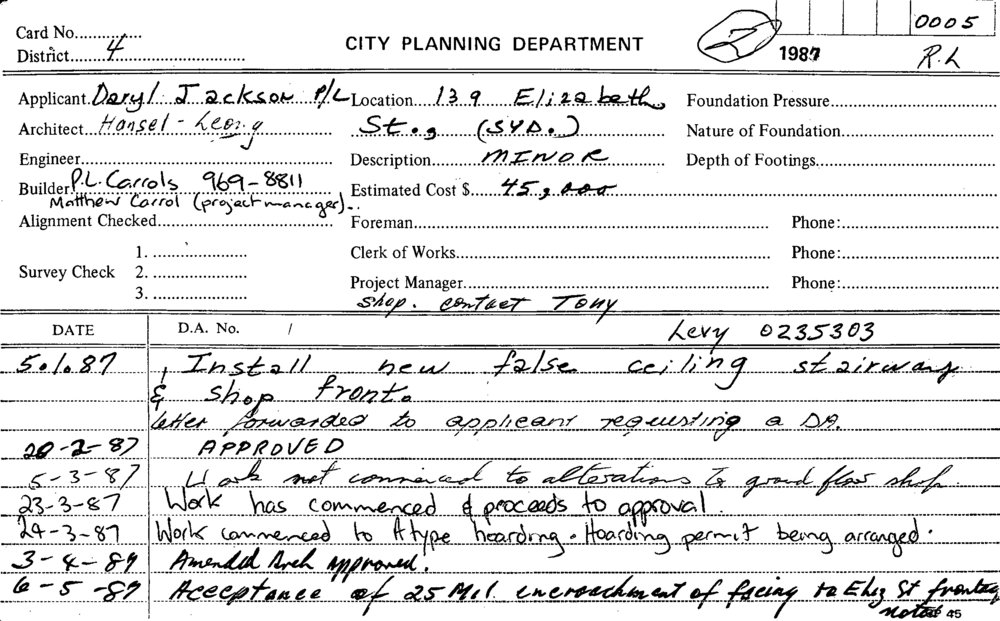 Card No.
District 4
CITY PLANNING DEPARTMENT
2
1987
0005
R.L
Applicant Daryl Jackson P/L
Location 139 Elizabeth
Foundation Pressure
Architect Hansel-
St., (SYD.)
Nature of Foundation
Engineer
Description MINOR
Depth of Footings
Builder P.L. Carrols 969-8811
Estimated Cost $ 45,000
Matthew Carrol (project manager)
Alignment Checked
Foreman
Phone:
1.
Clerk of Works
Phone:
Survey Check 2.
3.
Project Manager
Phone:
shop. contact Tony
DATE
D.A. No. /
Levy 0235303
5.1.87 Install new false ceiling stairway
& shop front.
letter forwarded to applicant requesting a DA.
20-2-87 APPROVED
5-3-87 Work not commenced to alterations to ground floor shop.
23-3-87 Work has commenced & proceeds to approval.
24-3-87 Work commenced to A type hoarding. Hoarding permit being arranged.
3-4-87 Amended Arch approved.
6-5-87 Acceptance of 25 Mil. encroachment of facing to Eliz St frontage
noted 45